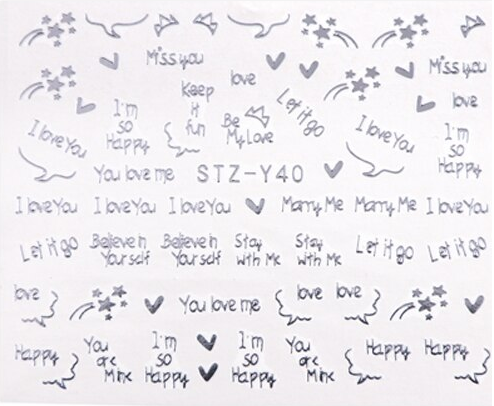 Miss you
Miss you
love
Keep
it
fun
love
I'm
so
Happy
Be
My Love
Let it go
I love You
I love You
I'm
so
Happy
You love me
STZ-Y40
I love You
I love You
I love You
Marry Me
Marry Me
I love You
Let it go
Believe in
Yourself
Believe in
Yourself
Stay
with Me
Stay
with Me
Let it go
Let it go
love
You love me
love
love
Happy
You
are
Mine
I'm
so
Happy
I'm
so
Happy
You
are
Mine
Happy
Happy